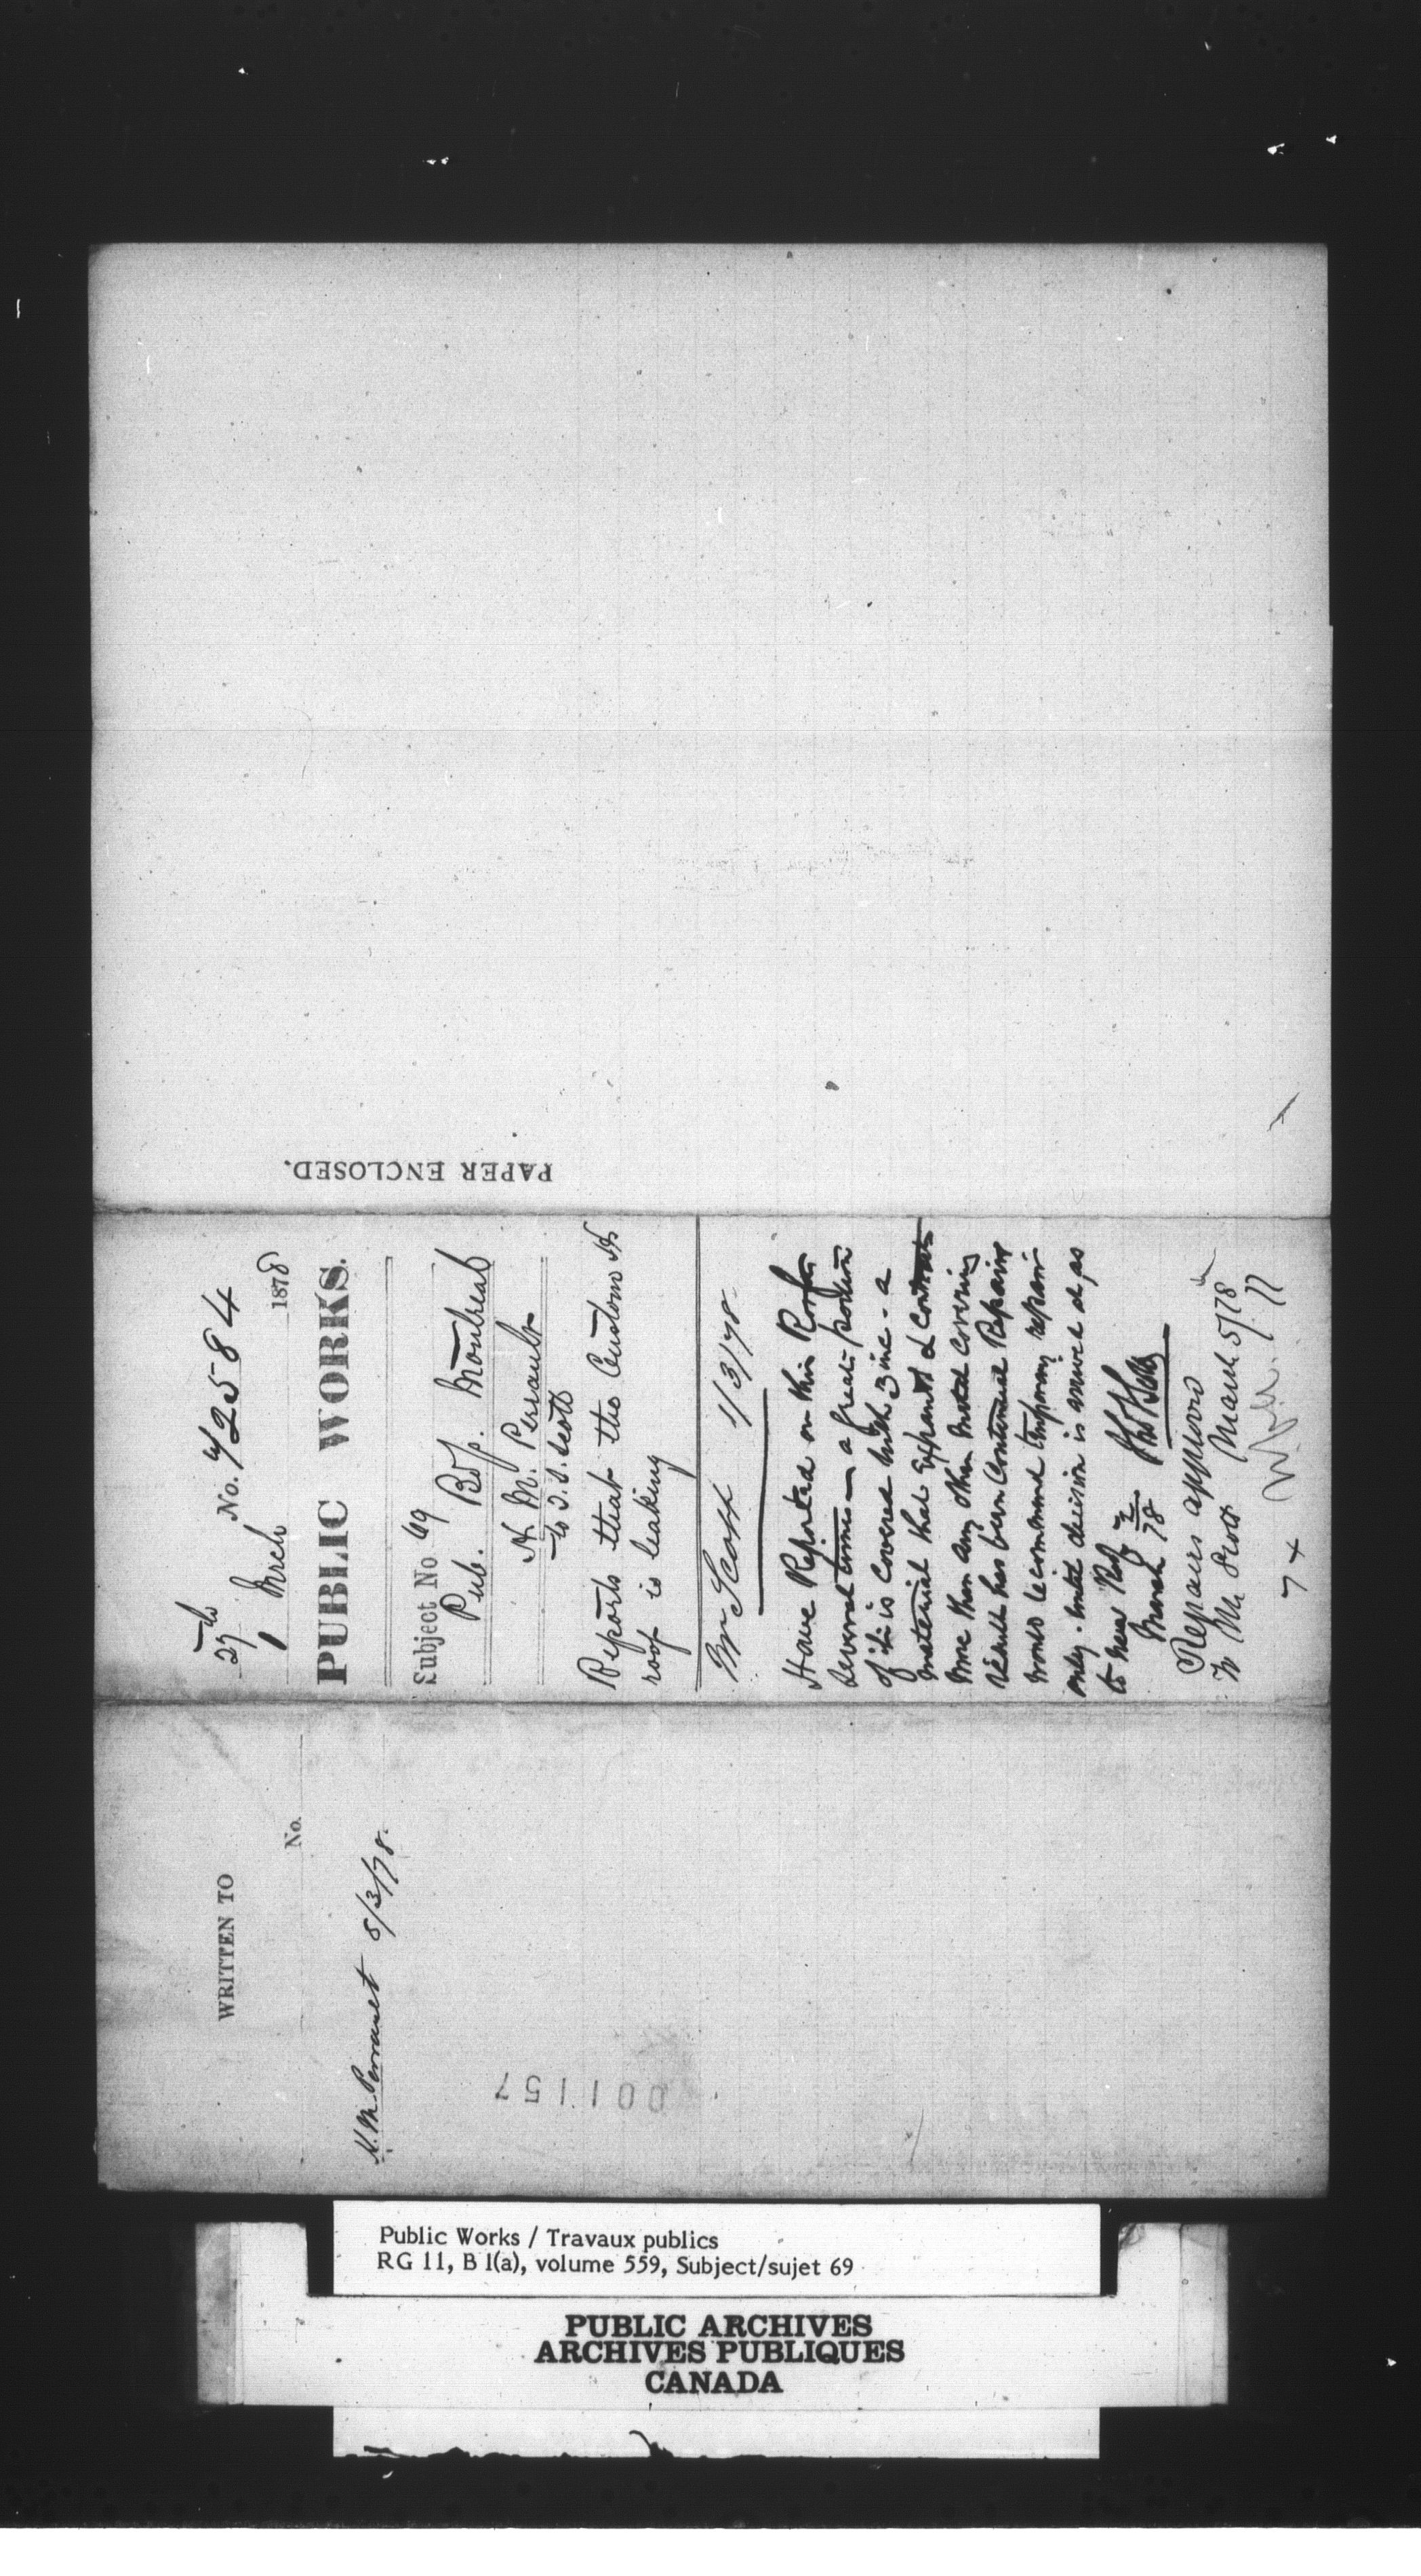 PAPER ENCLOSED.
27th No. 72584
1 March 1878
PUBLIC WORKS.
Subject No. 69
Pub. Bdgs. Montreal
H. M. Perrault
to T. S. Scott
Reports that the Custom Hs
roof is leaking
Mr Scott 1/3/78.
Have Reported on this Roof
several times — a great portion
of it is covered with Zinc - a
material that Expands & Contracts
more than any other metal covering
result has been Continual Repairs
would recommend temporary repair
only - until decision is arrived at as
to new Roof
March 78
Repairs approved
Mr Scott March 5/78
7 +
77
WRITTEN TO
No.
H. M. Perrault 5/3/78.
001157
Public Works / Travaux publics
RG 11, B 1(a), volume 559, Subject/sujet 69
PUBLIC ARCHIVES
ARCHIVES PUBLIQUES
CANADA